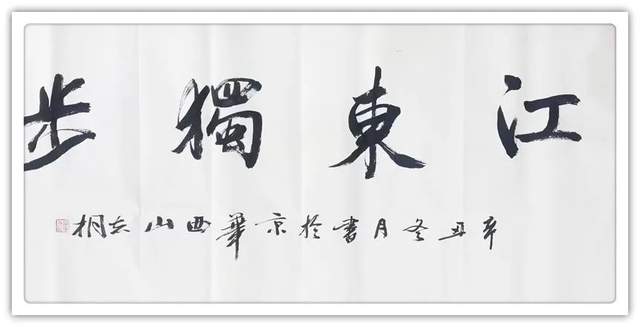 江東獨步
辛丑冬月書於京華西山桐